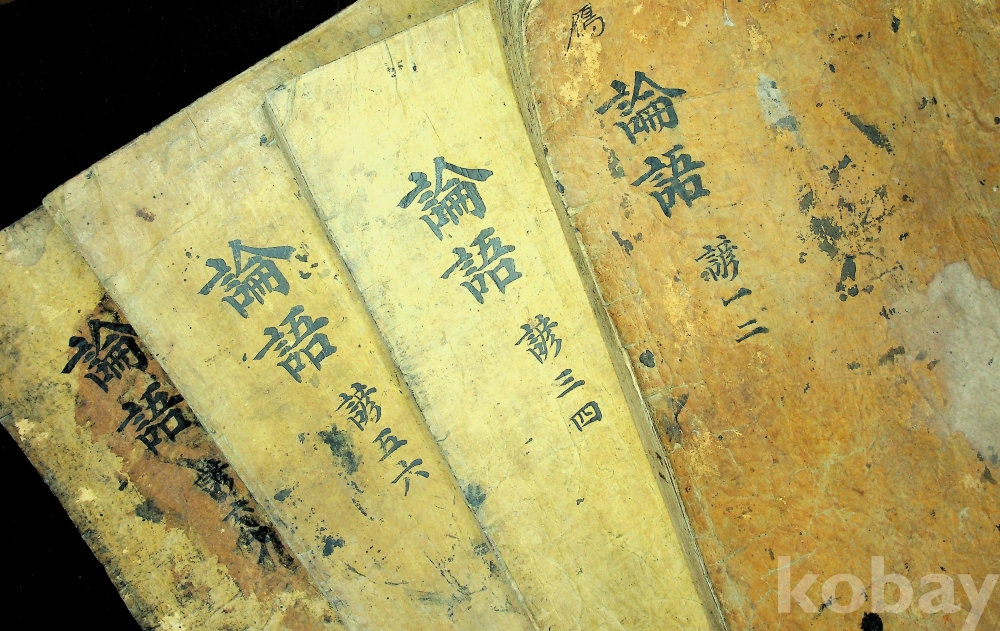 論語 諺一二
論語 諺三四
論語 諺五六
論語 諺
kobay